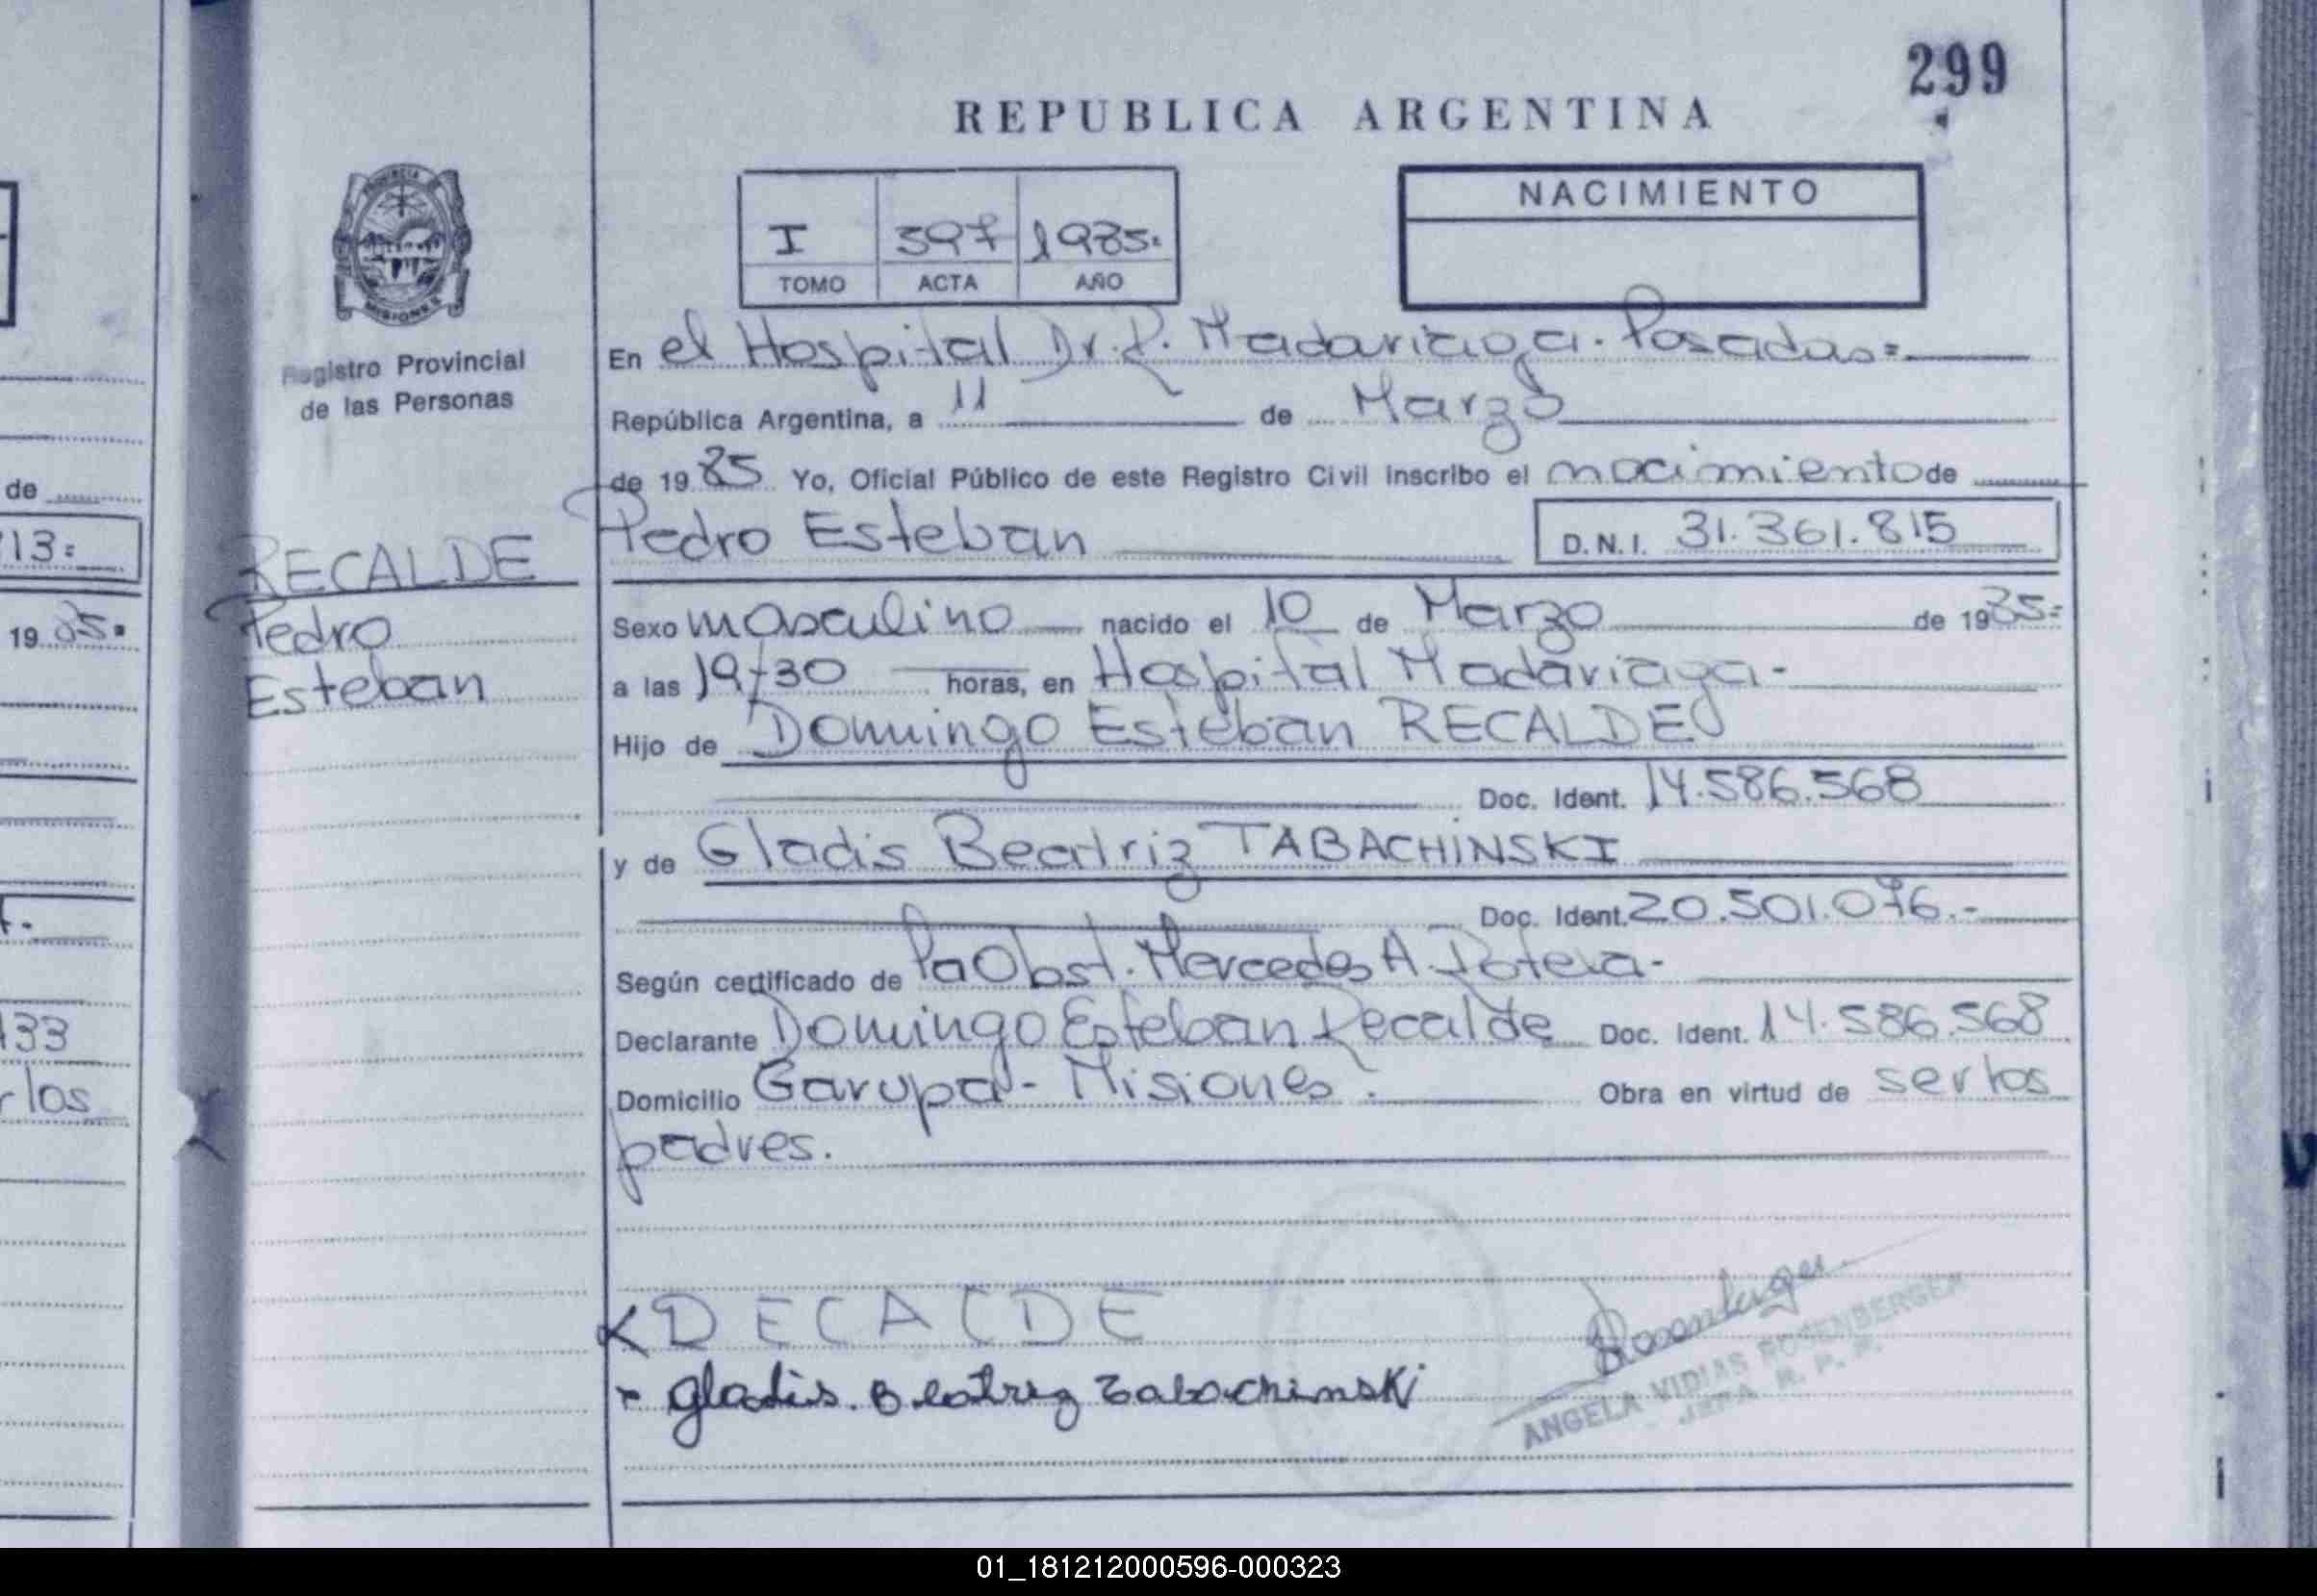 299
REPUBLICA ARGENTINA
I 597 1985=
TOMO ACTA AÑO
NACIMIENTO
PROVINCIA DE
MISIONES
Registro Provincial
de las Personas
En el Hospital Dr. R. Madariaga. Posadas=
República Argentina, a 11 de Marzo
de 1985 Yo, Oficial Público de este Registro Civil inscribo el nacimiento de
Pedro Esteban D.N.I. 31.361.815
RECALDE
Pedro
Esteban
Sexo masculino nacido el 10 de Marzo de 1985=
a las 19,30 horas, en Hospital Madariaga-
Hijo de Domingo Esteban RECALDE
Doc. Ident. 14.586.568
y de Gladis Beatriz TABACHINSKI
Doc. Ident. 20.501.076.-
Según certificado de Pa Obst. Mercedes A.
Declarante Domingo Esteban Recalde Doc. Ident. 14.586.568
Domicilio Garupa - Misiones. Obra en virtud de ser los
padres.
DECALDE
Gladis. Beatriz Tabachinski
ANGELA VIDIAS ROSENBERGER
JEFA R. P. P.
de
13=
19 85=
133
los
01_181212000596-000323